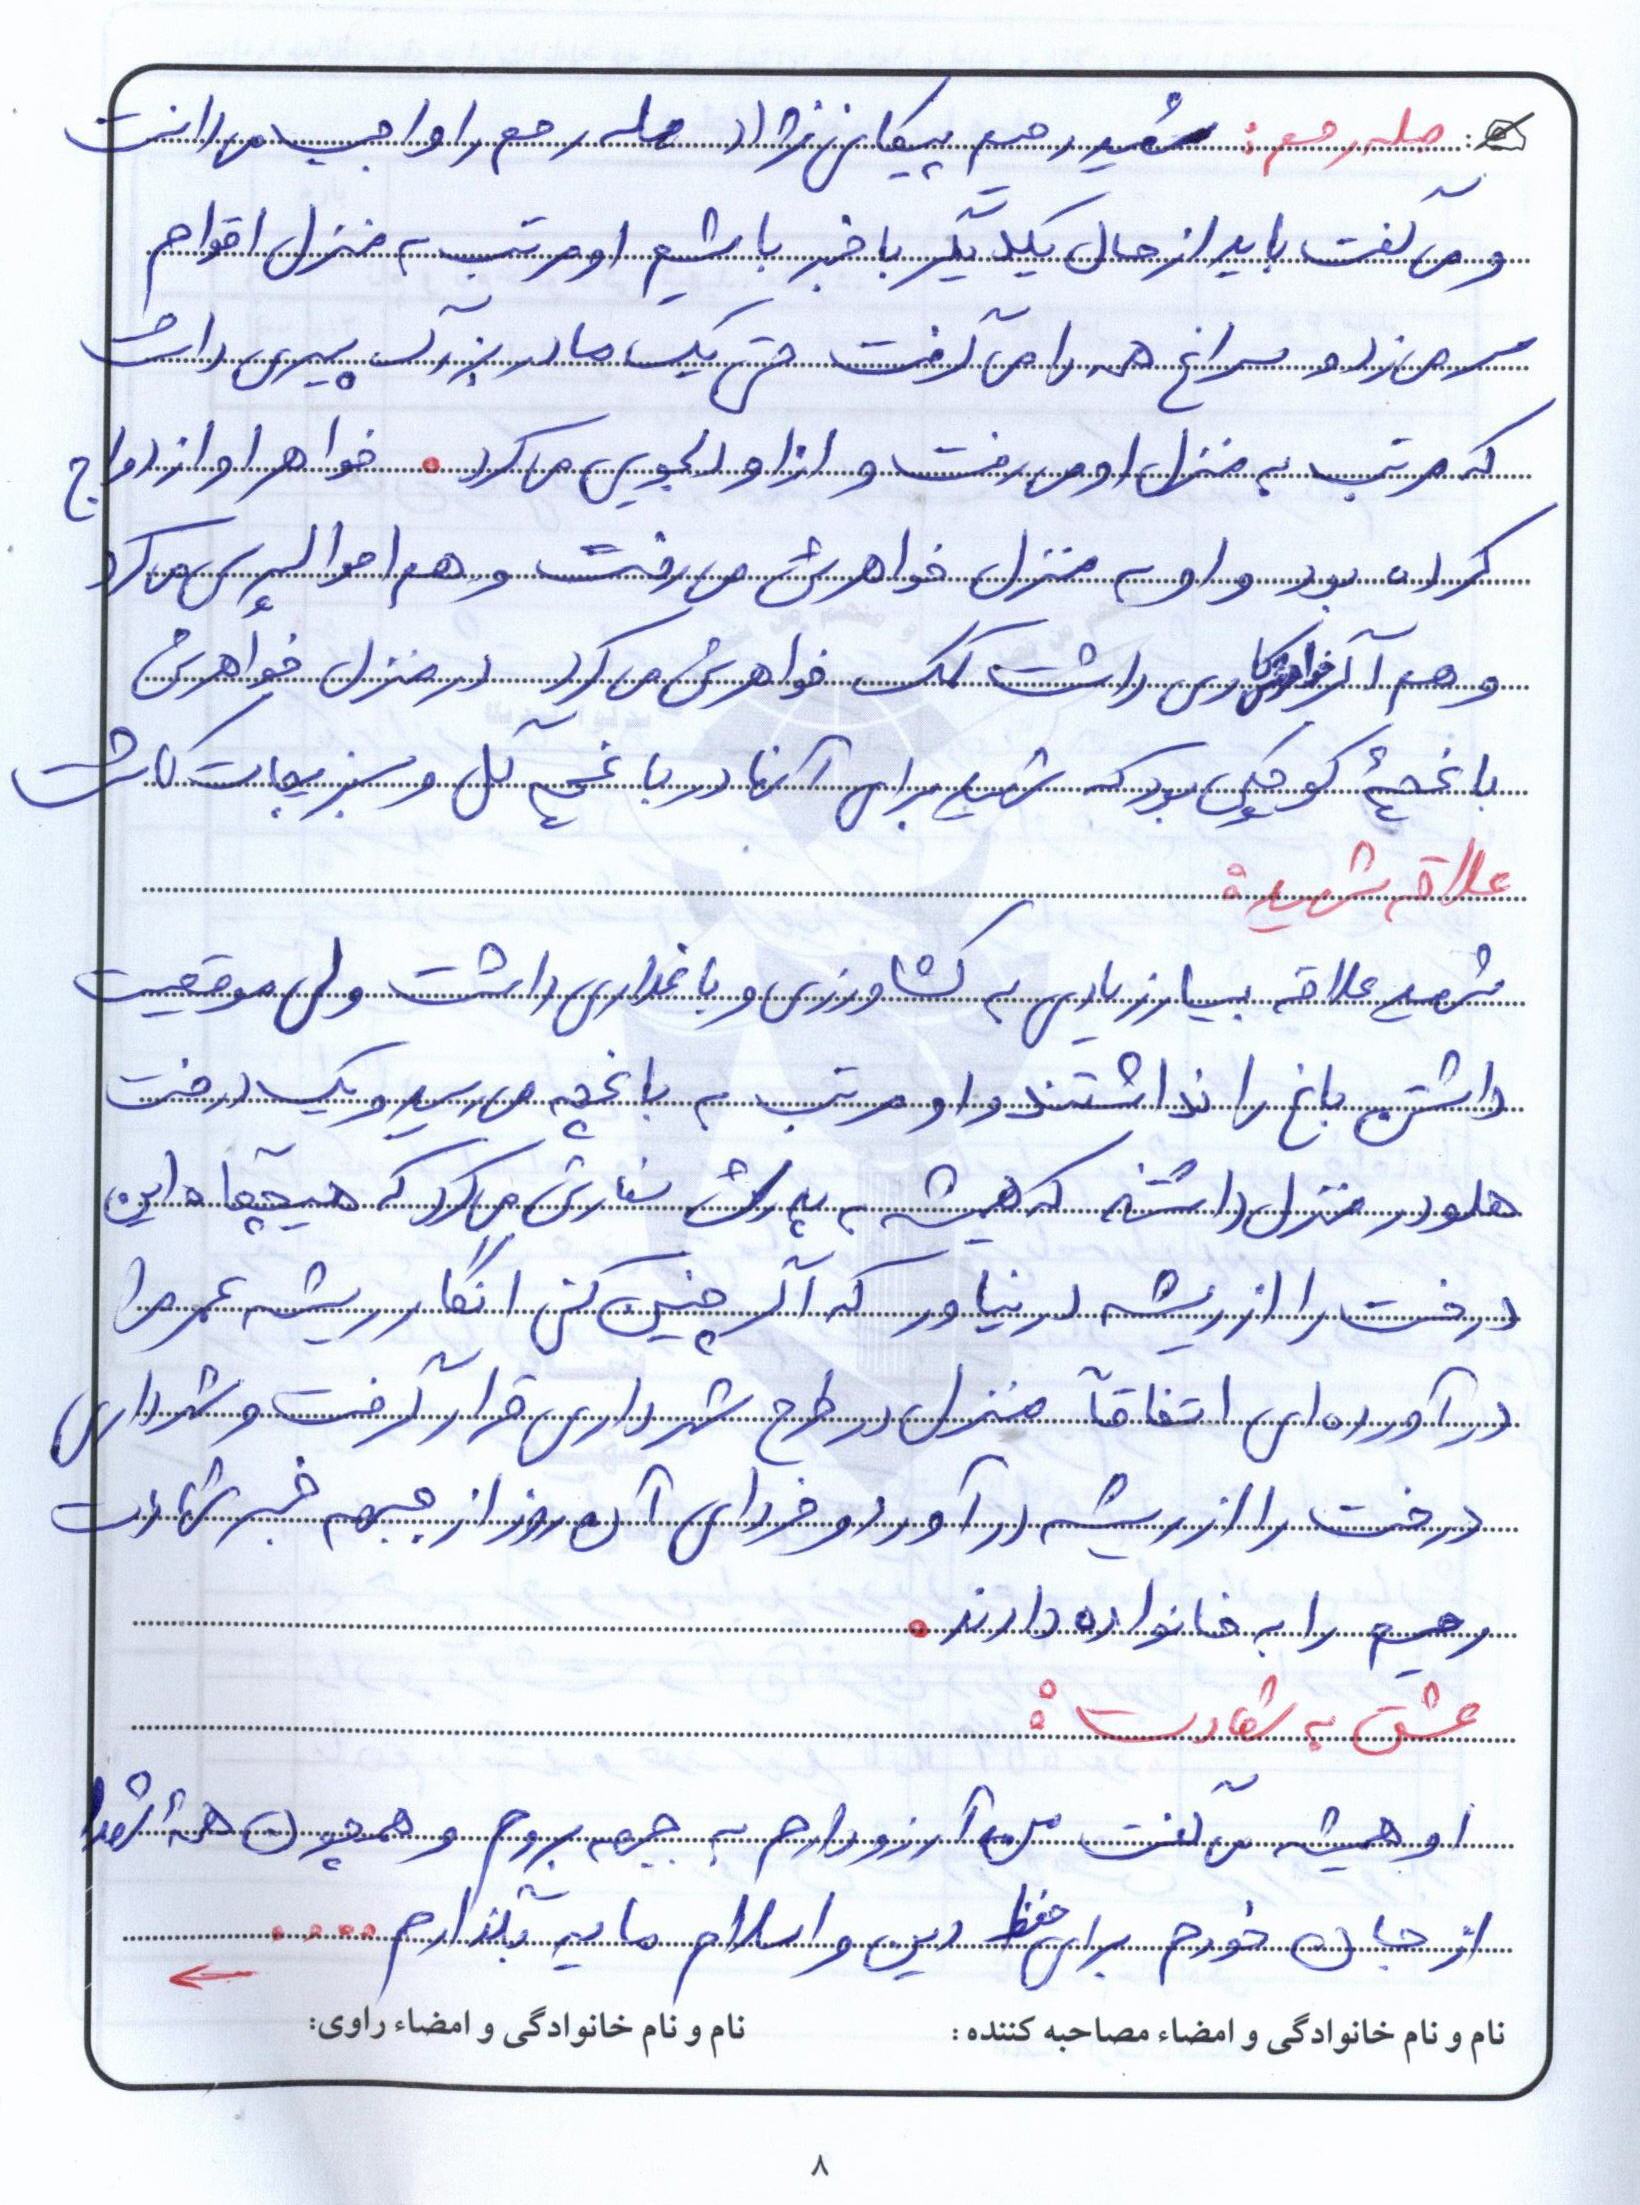 صله رحم: شهید رحیم پیکانی نژاد صله رحم را واجب می دانست
و می گفت باید از حال یکدیگر باخبر باشیم او مرتب به منزل اقوام
سر می زد و سراغ همه را می گرفت حتی یک مادربزرگ پیری داشت
که مرتب به منزل او می رفت و از او دلجویی می کرد. خواهر او ازدواج
کرده بود و او به منزل خواهرش می رفت و هم احوالپرسی می کرد
و هم اگر خواهرش کاری داشت کمک خواهرش می کرد در منزل خواهرش
باغچهٔ کوچکی بود که شهید برای آنها در باغچه گل و سبزیجات کاشت
علاقه شهید:
شهید علاقه بسیار زیادی به کشاورزی و باغداری داشت ولی موقعیت
داشتن باغ را نداشتند و او مرتب به باغچه می رسید و یک درخت
هلو در منزل داشته که همیشه به پدرش سفارش می کرد که هیچگاه این
درخت را از ریشه در نیاور که اگر چنین کنی انگار ریشه عمر مرا
در آورده ای اتفاقاً منزل در طرح شهرداری قرار گرفت و شهرداری
درخت را از ریشه در آورد و فردای آن روز از جبهه خبر شهادت
رحیم را به خانواده دادند.
عشق به شهادت:
او همیشه می گفت من آرزو دارم به جبهه بروم و همچون همهٔ شهدا
از جان خودم برای حفظ دین و اسلام مایه بگذارم ....
نام و نام خانوادگی و امضاء مصاحبه کننده: نام و نام خانوادگی و امضاء راوی:
۸